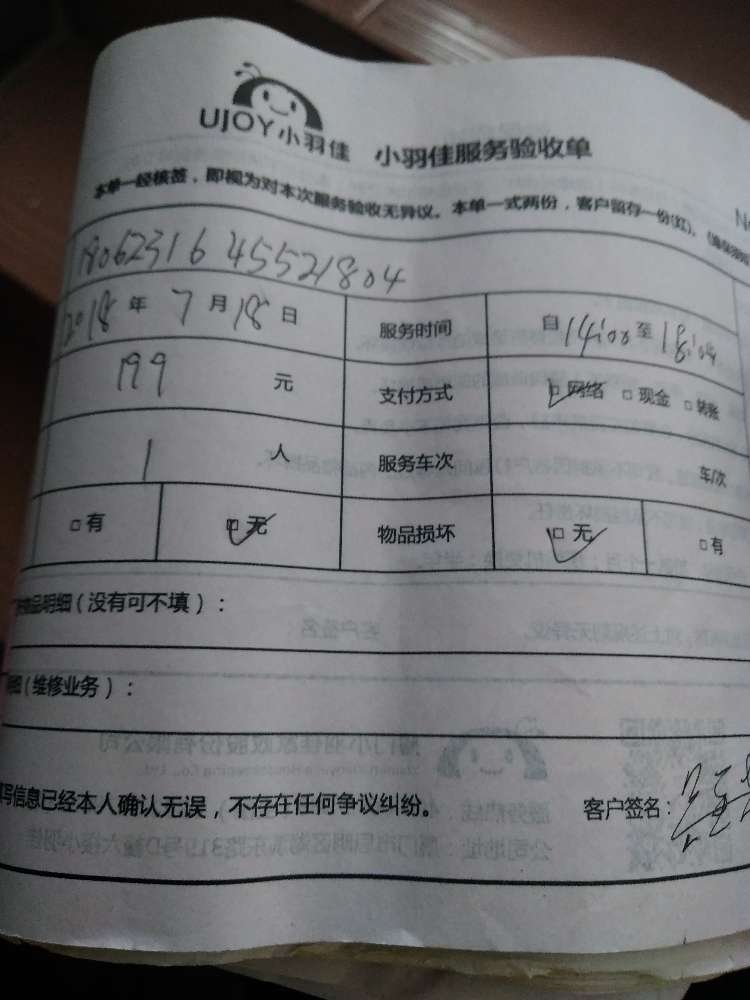 UJOY小羽佳 小羽佳服务验收单
No
本单一经核签，即视为对本次服务验收无异议。本单一式两份，客户留存一份(红)。
1806231645521804
2018年7月18日 服务时间 自14:00至18:00
199元 支付方式 □网络 □现金 □转账
1人 服务车次 车/次
□有 □无 物品损坏 □无 □有
物品明细（没有可不填）：
（维修业务）：
写信息已经本人确认无误，不存在任何争议纠纷。 客户签名：